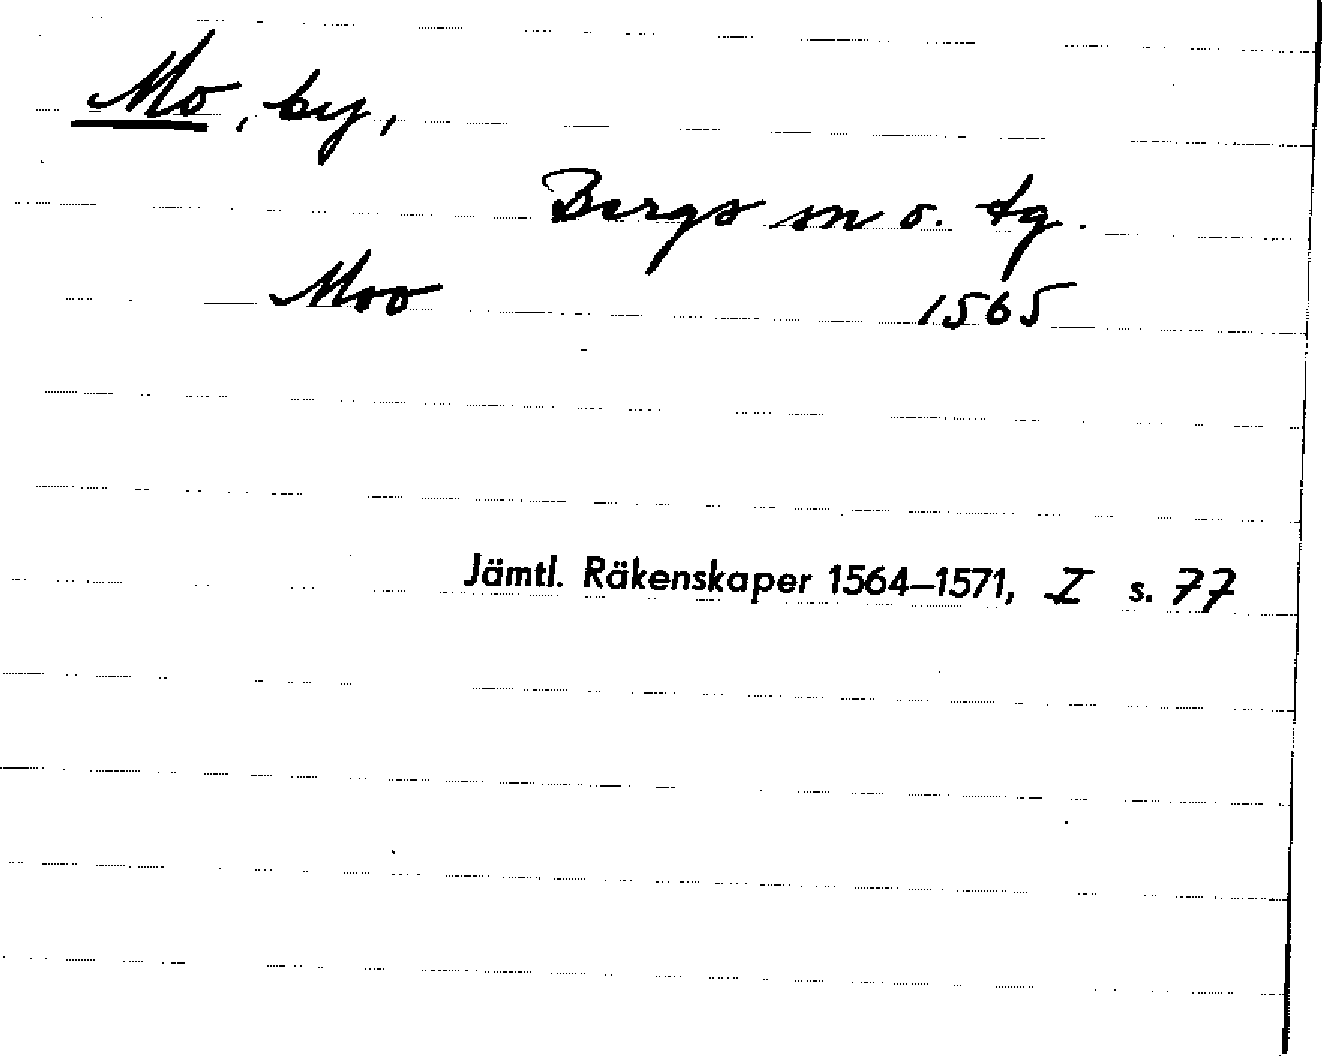 Mo, by,
Bergs sn o. tg.
Moo 1565
Jämtl. Räkenskaper 1564–1571, I s. 77